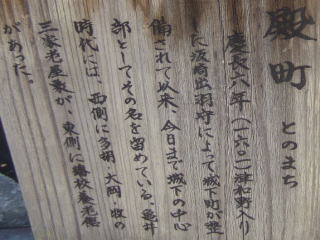 殿町 とのまち
慶長六年(一六〇一)津和野入り
た坂崎出羽守によって城下町が整
備されて以来、今日まで城下の中心
部としてその名を留めている。亀井
時代には、西側に多胡、大岡、牧の
三家老屋敷が、東側に藩校養老館
があった。